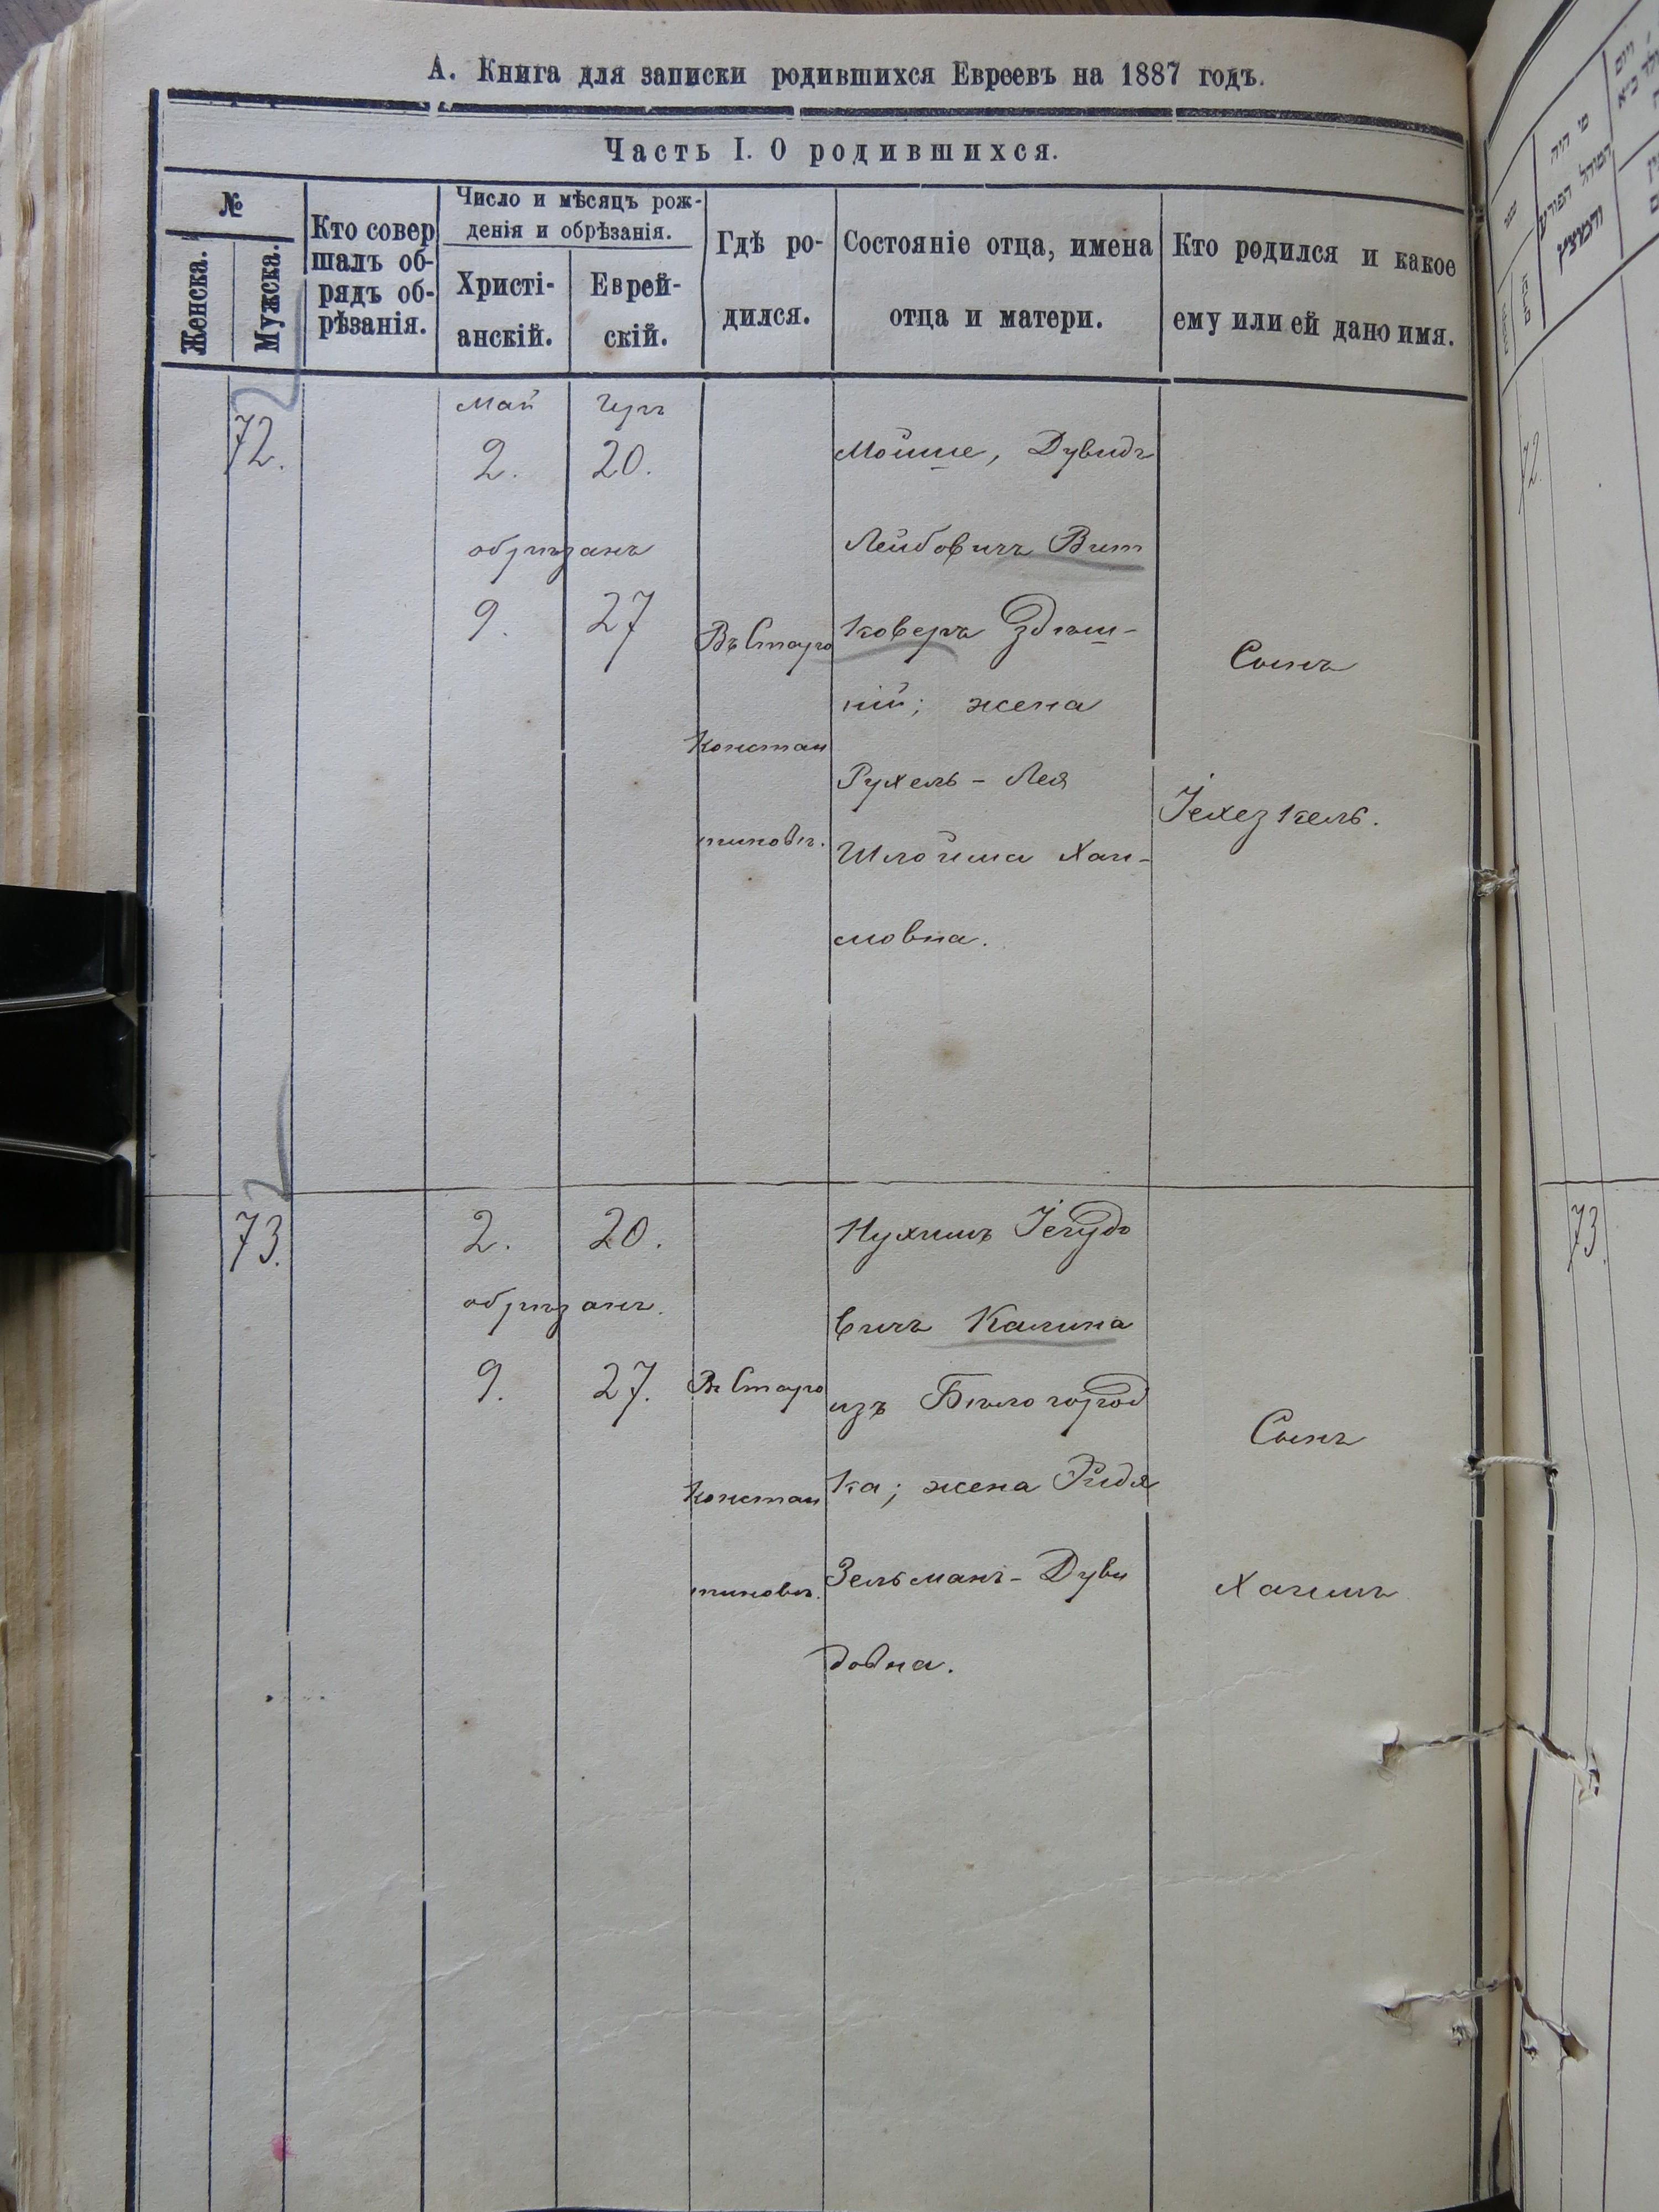 А. Книга для записки родившихся Евреевъ на 1887 годъ.
Часть I. О родившихся.
№
Женска.
Мужска.
Кто совер
шалъ об-
рядъ об-
рѣзанія.
Число и мѣсяцъ рож-
денія и обрѣзанія.
Христі-
анскій.
Еврей-
скій.
Гдѣ ро-
дился.
Состояніе отца, имена
отца и матери.
Кто родился и какое
ему или ей дано имя.
72.
Май
2.
20.
обрѣзанъ
9.
27
Въ Старо
Констан
тиновѣ.
Мойше, Дувидъ
Лейбовичъ Вит
коверъ Здѣш-
ній; жена
Рухель - Лея
Шлойма Хаи-
мовна.
Сынъ
Іехезкель.
73.
2.
20.
обрѣзанъ.
9.
27.
Въ Старо
Констан
тиновѣ.
Нухимъ Іегудо
вичъ Калина
изъ Бѣлогород
ка; жена Ридя
Зельманъ - Дуви
довна.
Сынъ
Хаимъ
72.
73.